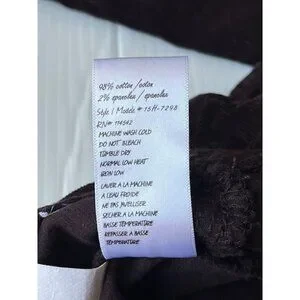 98% cotton/coton
2% spandex/spandex
Style/Modèle # 15H-7298
RN# 114542
MACHINE WASH COLD
DO NOT BLEACH
TUMBLE DRY
NORMAL LOW HEAT
IRON LOW
LAVER A LA MACHINE
A L'EAU FROIDE
NE PAS JAVELLISER
SECHER A LA MACHINE
BASSE TEMPERATURE
REPASSER A BASSE
TEMPERATURE